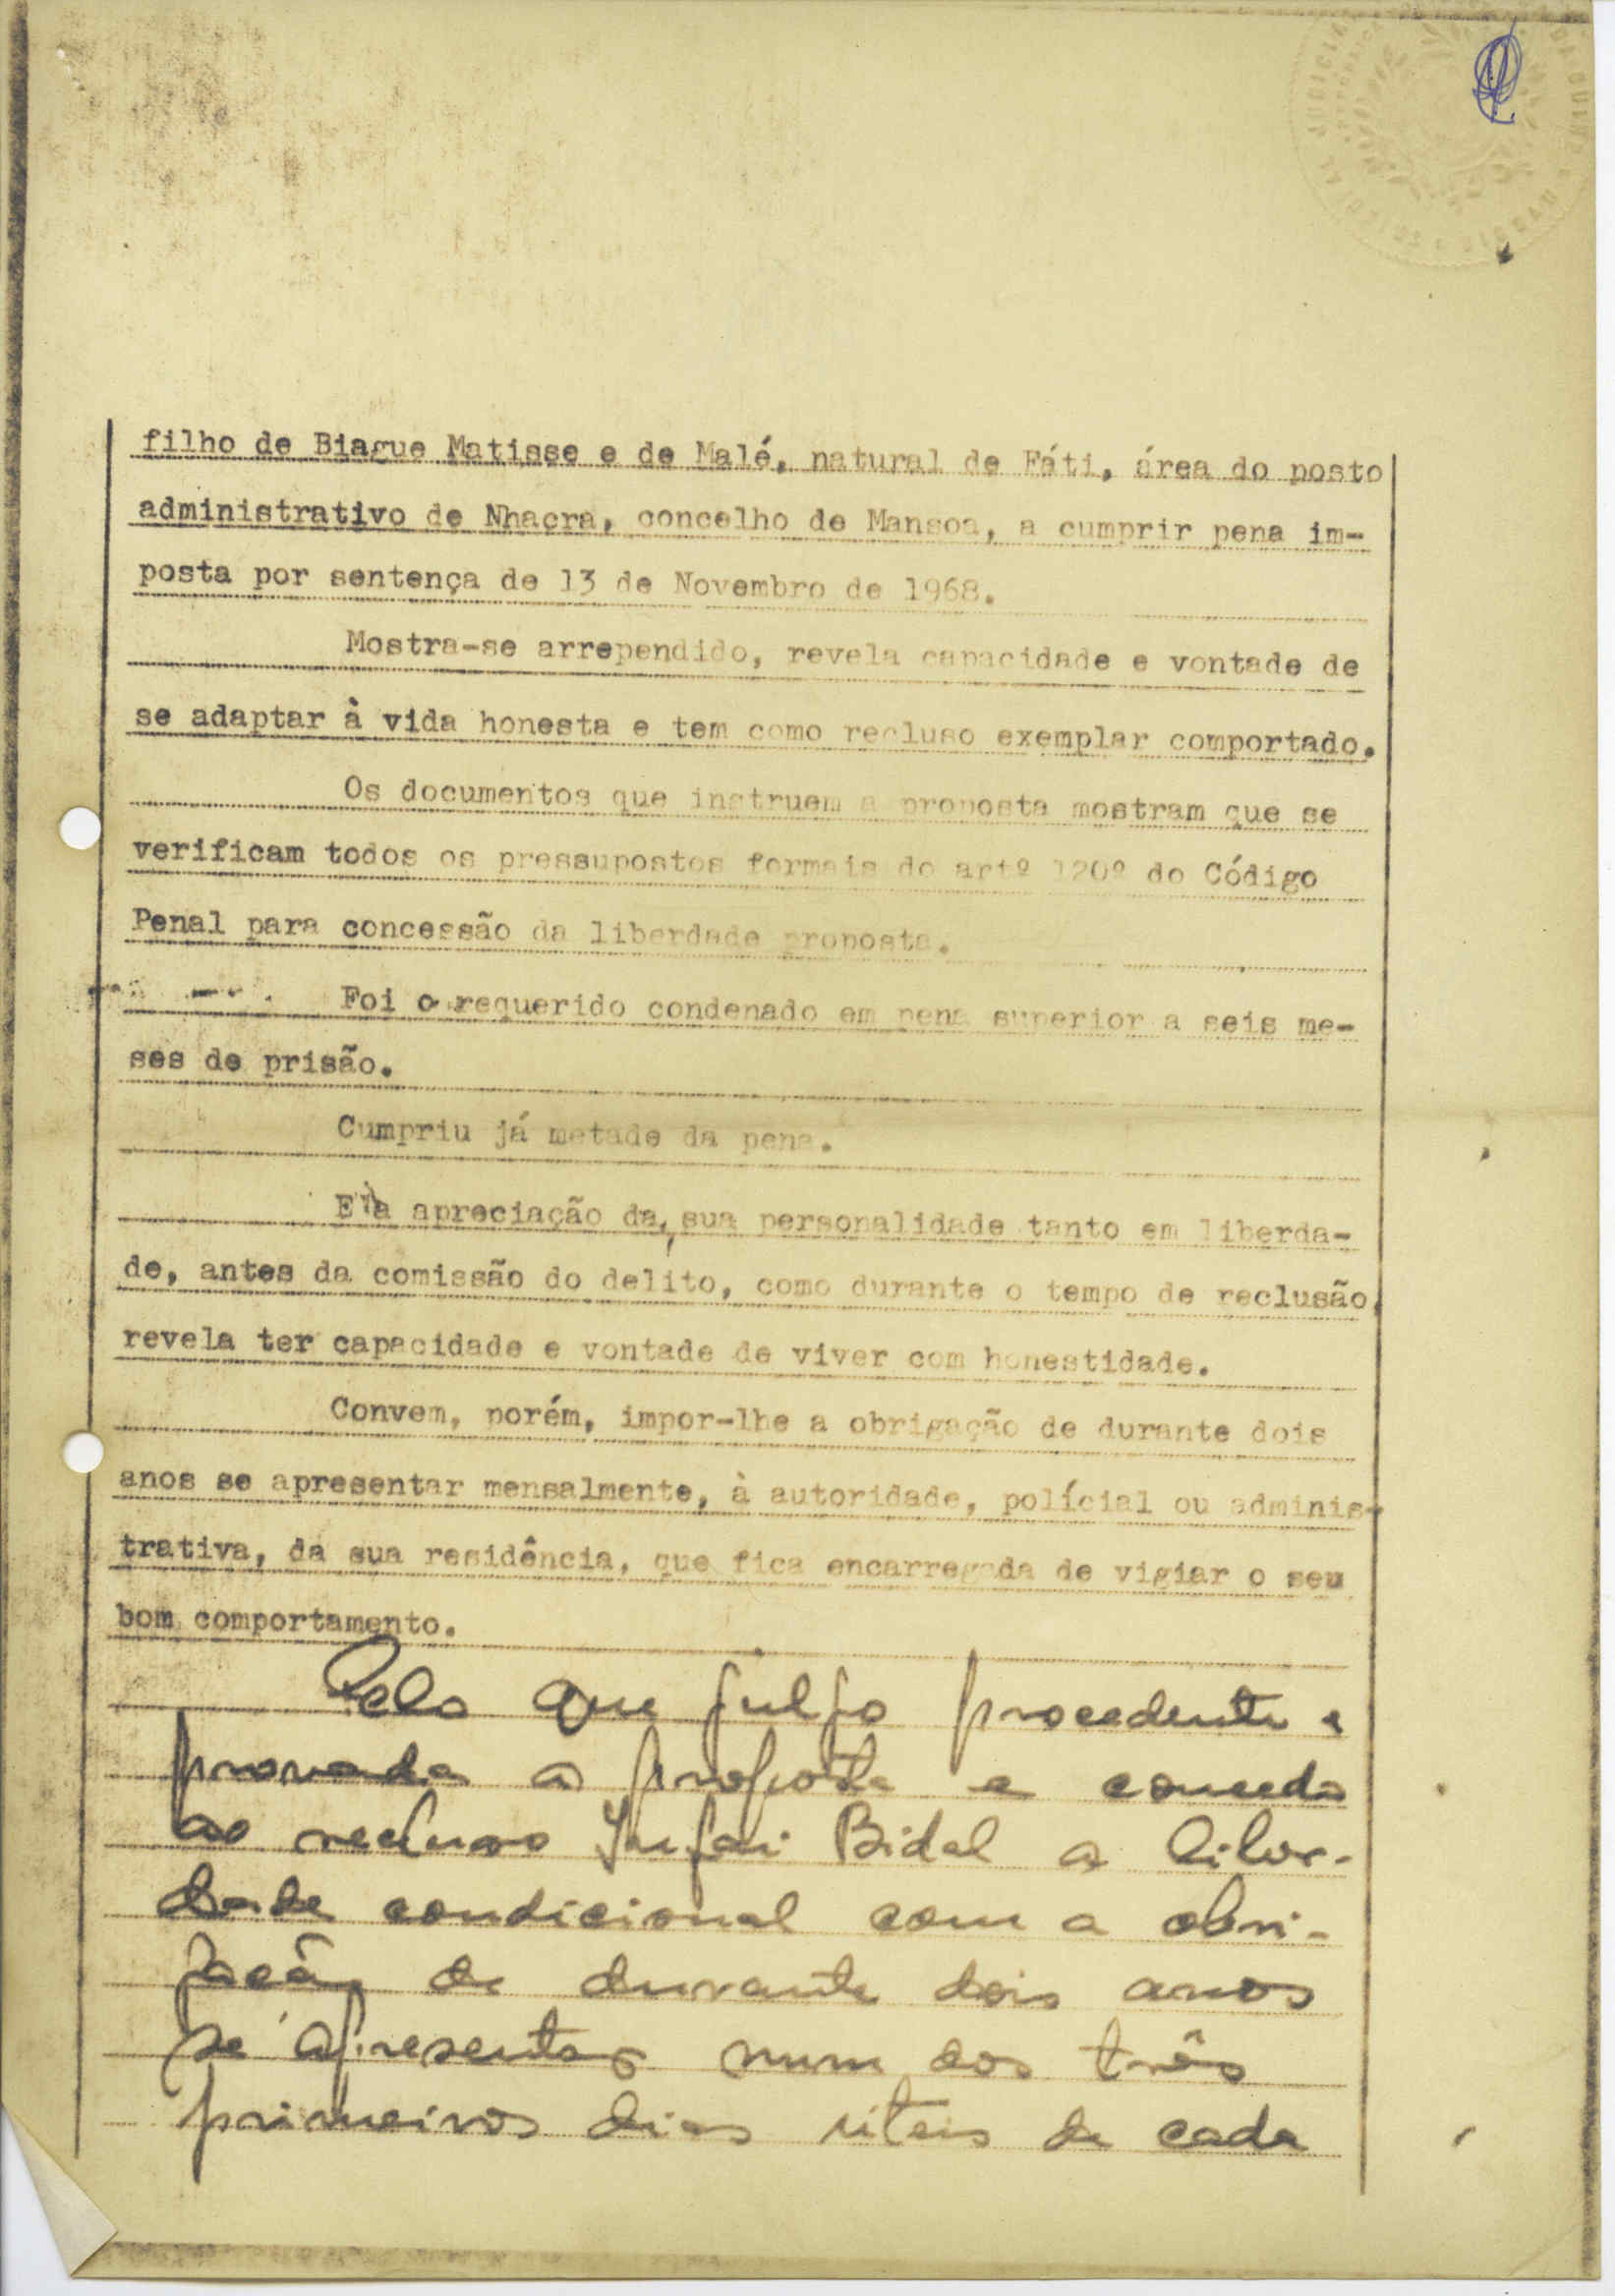 filho de Biague Matisse e de Malé, natural de Fáti, área do posto
administrativo de Nhacra, concelho de Mansoa, a cumprir pena im-
posta por sentença de 13 de Novembro de 1968.
Mostra-se arrependido, revela capacidade e vontade de
se adaptar à vida honesta e tem como recluso exemplar comportado.
Os documentos que instruem a proposta mostram que se
verificam todos os pressupostos formais do artº 120º do Código
Penal para concessão da liberdade proposta.
Foi o requerido condenado em pena superior a seis me-
ses de prisão.
Cumpriu já metade da pena.
E a apreciação da, sua personalidade tanto em liberda-
de, antes da comissão do delito, como durante o tempo de reclusão,
revela ter capacidade e vontade de viver com honestidade.
Convem, porém, impor-lhe a obrigação de durante dois
anos se apresentar mensalmente, à autoridade, polícial ou adminis-
trativa, da sua residência, que fica encarregada de vigiar o seu
bom comportamento.
Pelo que julgo procedente e
provada a proposta e concedo
ao recluso Infai Bidal a liber-
dade condicional com a obri-
gação de durante dois anos
se apresentar num dos três
primeiros dias úteis de cada